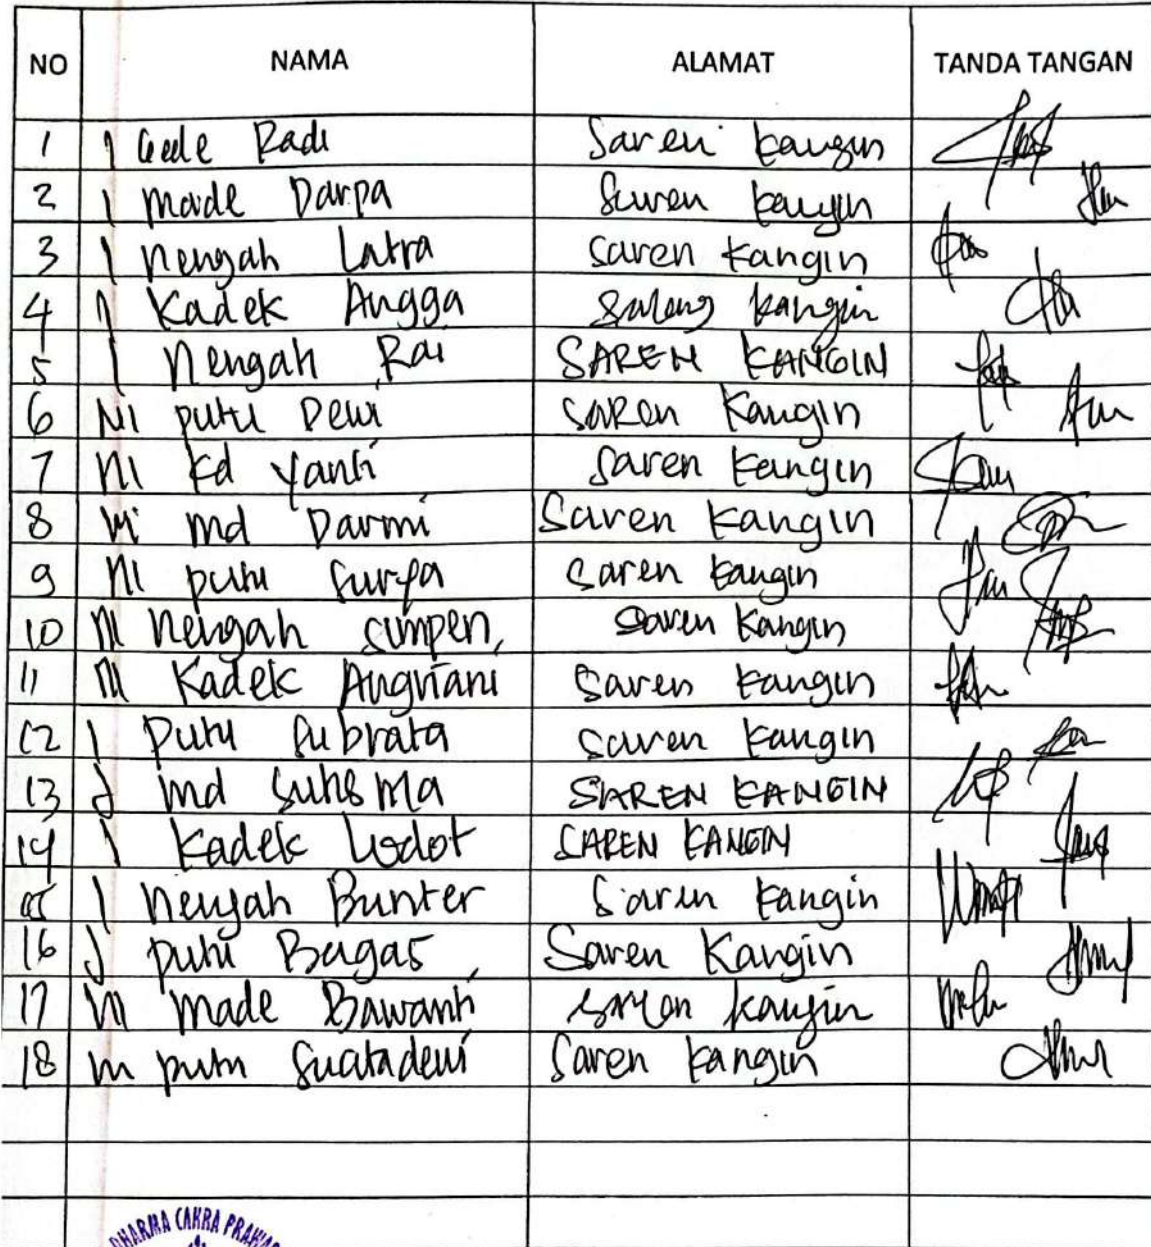 NO NAMA ALAMAT TANDA TANGAN
1 I Gede Radi Saren kangin
2 I made Darpa Saren kangin
3 I nengah Latra Saren kangin
4 I Kadek Angga kangin
5 I Nengah Rai SAREN KANGIN
6 NI putu Dewi SAREN Kangin
7 NI kd Yanti Saren kangin
8 Ni md Darmi Saren kangin
9 NI putu Surya Saren kangin
10 NI nengah simpen, Saren Kangin
11 NI Kadek Angriani Saren kangin
12 I Putu Subrata Saren kangin
13 I md SAREN KANGIN
14 I Kadek Lodot SAREN KANGIN
15 I Nengah Bunter Saren kangin
16 I putu Bagas, Saren Kangin
17 NI made Bawanti Saren kangin
18 NI putu Suatadewi Saren kangin
DHARMA CAKRA